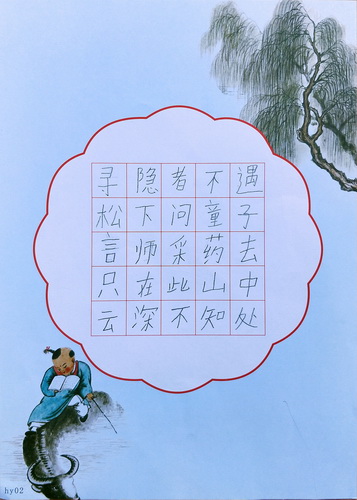 寻隐者不遇
松下问童子
言师采药去
只在此山中
云深不知处
hy02